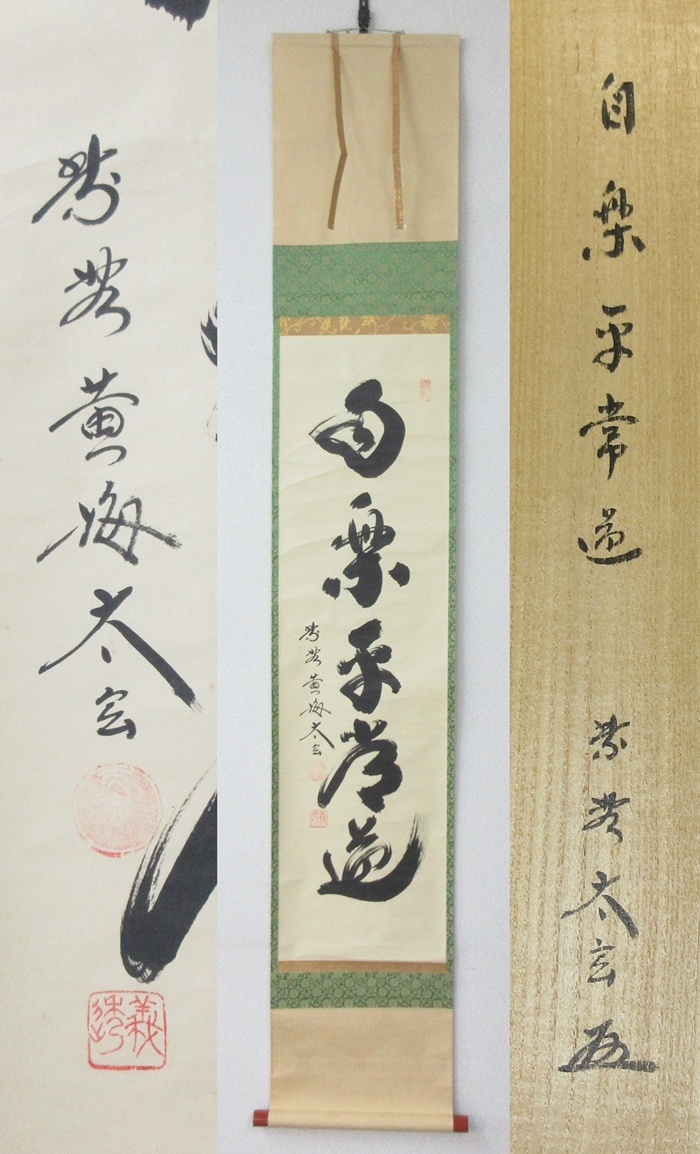 紫野黄梅太玄
義透
自楽平常道
紫野黄梅太玄
自楽平常道
紫野太玄